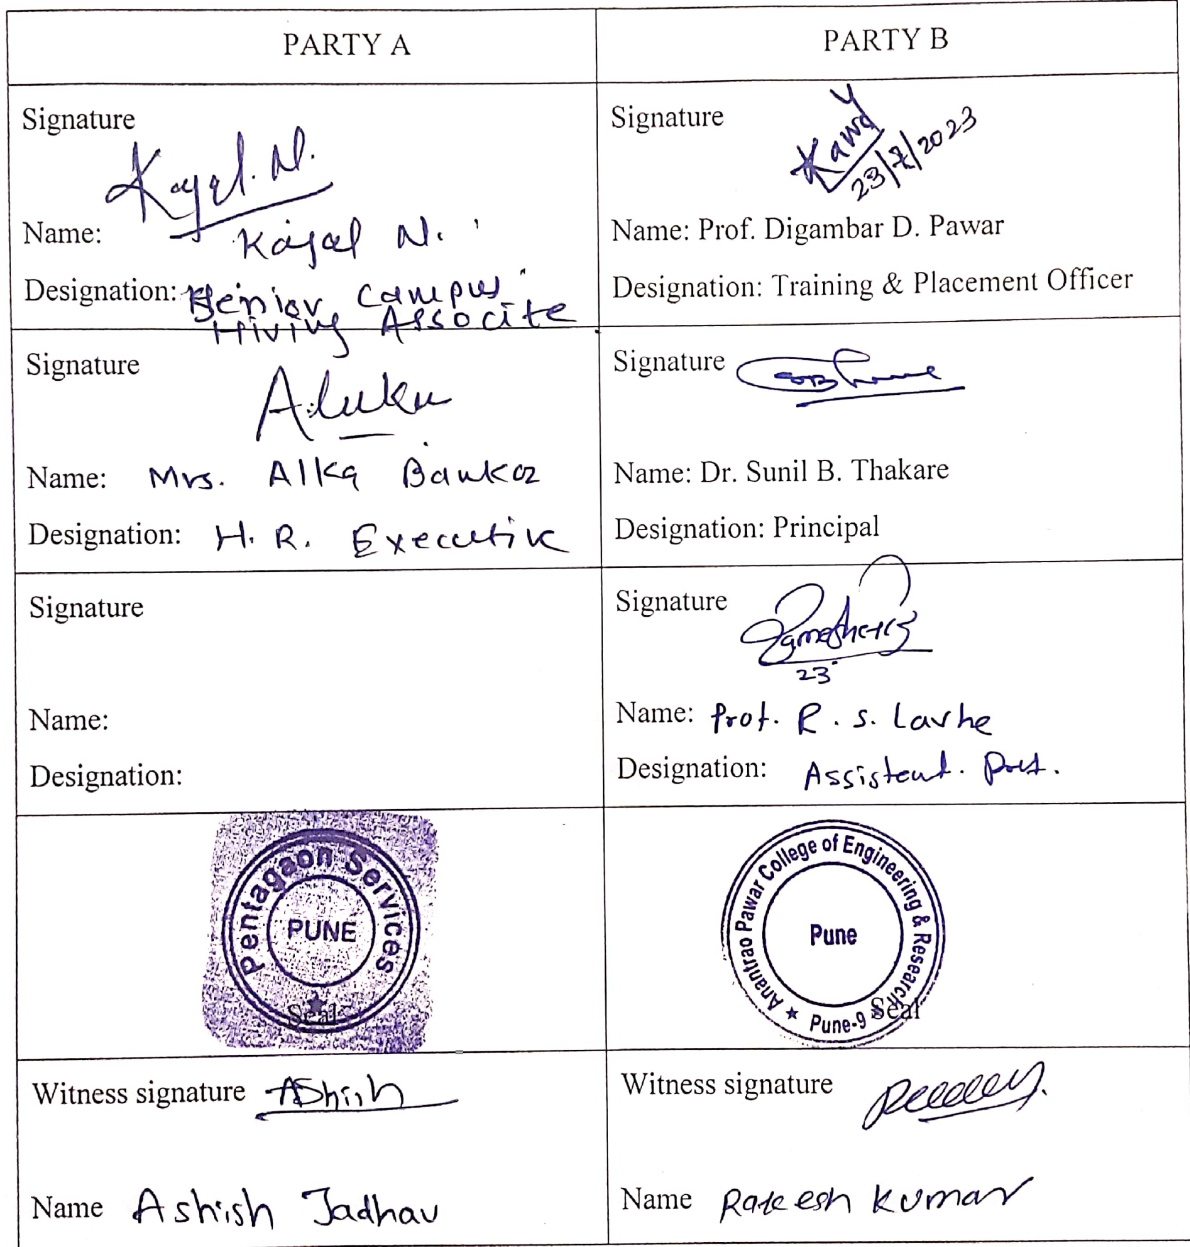 PARTY A
PARTY B
Signature
Kajal. N.
Name: Kajal N.
Designation: Senior Campus
Hiring Associte
Signature
23/7/2023
Name: Prof. Digambar D. Pawar
Designation: Training & Placement Officer
Signature
Name: Mrs. Alka Bankar
Designation: H. R. Executive
Signature
Name: Dr. Sunil B. Thakare
Designation: Principal
Signature
Name:
Designation:
Signature
23
Name: Prof. R. S. Lavhe
Designation: Assistent. Prof.
Pentagaon Services
PUNE
Seal
Anantrao Pawar College of Engineering & Research
Pune
Pune-9
Seal
Witness signature Ashish
Name Ashish Jadhav
Witness signature
Name Rakesh Kumar